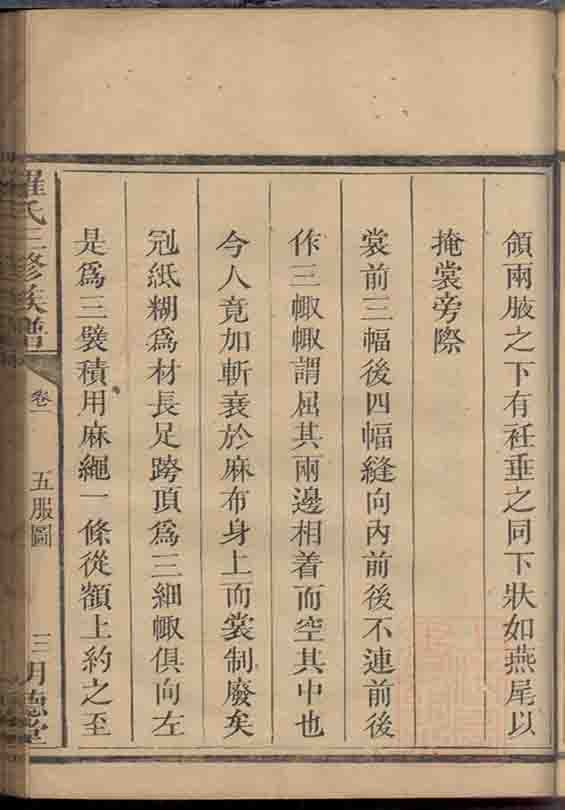 領兩腋之下有衽垂之同下狀如燕尾以
掩裳旁際
裳前三幅後四幅縫向內前後不連前後
作三㡇㡇謂屈其兩邊相着而空其中也
今人竟加斬衰於麻布身上而裳制廢矣
冠紙糊爲材長足跨頂爲三細㡇俱向左
是爲三襞積用麻繩一條從額上約之至
羅氏三修族譜 卷一 五服圖 三 明德堂